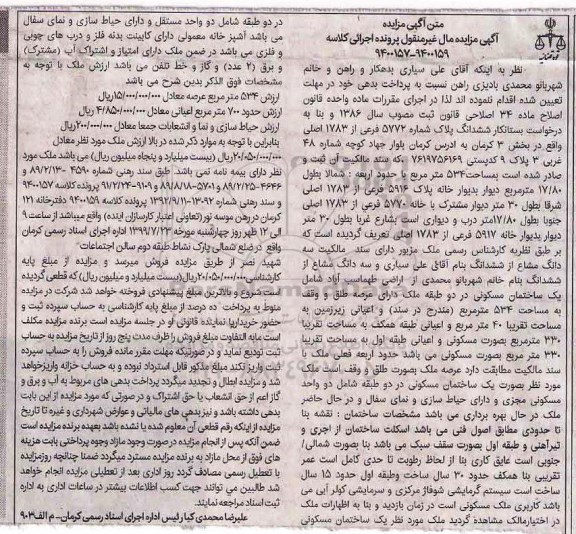 متن آگهی مزایده
آگهی مزایده مال غیرمنقول پرونده اجرائی کلاسه
۹۴۰۰۱۵۷-۹۴۰۰۱۵۹
نظر به اینکه آقای علی سیاری بدهکار و راهن و خانم
شهربانو محمدی بادیزی راهن نسبت به پرداخت بدهی خود در مهلت
تعیین شده اقدام ننموده اند لذا در اجرای مقررات ماده واحده قانون
اصلاح ماده ۳۴ اصلاحی قانون ثبت مصوب سال ۱۳۸۶ و بنا به
درخواست بستانکار ششدانگ پلاک شماره ۵۷۷۲ فرعی از ۱۷۸۳ اصلی
واقع در بخش ۳ کرمان به ادرس کرمان بلوار جهاد کوچه شماره ۴۸
غربی ۳ پلاک ۹ کدپستی ۷۶۱۹۷۵۶۱۶۹ که سند مالکیت آن ثبت و
صادر شده است بمساحت ۵۳۴ متر مربع با حدود اربعه : شمالا بطول
۱۷/۸۰ مترمربع دیوار بدیوار خانه پلاک ۵۹۱۶ فرعی از ۱۷۸۳ اصلی
شرقا بطول ۳۰ متر دیوار مشترک با خانه ۵۷۷۰ فرعی از ۱۷۸۳ اصلی
جنوبا بطول ۱۷/۸۰متر درب و دیواری است بشارع غربا بطول ۳۰ متر
دیوار بدیوار خانه ۵۹۱۷ فرعی از ۱۷۸۳ اصلی تعریف گردیده است که
بر طبق نظریه کارشناس رسمی ملک مزبور دارای سند مالکیت سه
دانگ مشاع از ششدانگ بنام آقای علی سیاری و سه دانگ مشاع از
ششدانگ بنام خانم شهربانو محمدی از اراضی طهماسب آباد شامل
یک ساختمان مسکونی در دو طبقه ملک دارای عرصه طلق و وقف
به مساحت ۵۳۴ مترمربع (مندرج در سند) و اعیانی زیرزمین به
مساحت تقریبا ۴۰ متر مربع و اعیانی طبقه همکف به مساحت تقریبا
۳۳۰ مترمربع بصورت مسکونی و اعیانی طبقه اول به مساحت تقریبا
۳۳۰ متر مربع بصورت مسکونی می باشد حدود اربعه فعلی ملک با
سند مالکیت مطابقت دارد عرصه ملک بصورت طلق و وقف است ملک
مورد نظر بصورت یک ساختمان مسکونی در دو طبقه شامل دو واحد
مسکونی مجزی و دارای حیاط سازی و نمای سفال و در حال حاضر
ملک در حال بهره برداری می باشد مشخصات ساختمان : نقشه بنا
تا حدودی مطابق اصول فنی می باشد اسکلت ساختمان از اجری و
تیرآهنی و طبقه اول بصورت سقف سبک می باشد بنا بصورت شمالی/
جنوبی است عایق کاری بنا از لحاظ رطوبت تا حدی کامل است عمر
تقریبی بنا همکف حدود ۳۰ سال ساخت وطبقه اول حدود ۱۵ سال
ساخت است سیستم گرمایشی شوفاژ مرکزی و سرمایشی کولر آبی می
باشد کاربری ملک مسکونی است در زمان بازدید و بنا به اظهارات ملک
در اختیارمالک مشاهده گردید ملک مورد نظر یک ساختمان مسکونی
در دو طبقه شامل دو واحد مستقل و دارای حیاط سازی و نمای سفال
می باشد آشپز خانه معمولی دارای کابینت بدنه فلز و درب های چوبی
و فلزی می باشد در ضمن ملک دارای امتیاز و اشتراک آب (مشترک)
و برق (۲ عدد) و گاز و خط تلفن می باشد ارزش ملک با توجه به
مشخصات فوق الذکر بدین شرح می باشد
ارزش ۵۳۴ متر مربع عرصه معادل ۱۵/۰۰۰/۰۰۰/۰۰۰ریال
ارزش حدود ۷۰۰ متر مربع اعیانی معادل ۴/۸۵۰/۰۰۰/۰۰۰ ریال
ارزش حیاط سازی و نما و انشعابات جمعا معادل ۲۰۰/۰۰۰/۰۰۰ریال
بنابراین با توجه به موارد ذکر شده در بالا ارزش ملک مورد نظر معادل
۲۰/۰۵۰/۰۰۰/۰۰۰ریال (بیست میلیارد و پنجاه میلیون ریال) می باشد ملک مورد
نظر دارای بیمه نامه نمی باشد. طبق سند رهنی شماره ۴۵۹۰ -۸۹/۲/۱۳ و
۴۶۴۶-۸۹/۲/۲۵ و ۵۷۰۱-۸۹/۸/۱۸ و ۹۱۰۹-۹۱/۲/۲۴ پرونده کلاسه ۹۴۰۰۱۵۷
و سند رهنی شماره ۱۳۰۹۲-۹۲/۹/۱۱ پرونده کلاسه ۹۴۰۰۱۵۹ دفترخانه ۱۲۱
کرمان در رهن موسه نور(تعاونی اعتبار کارسازان اینده) واقع میباشد از ساعت ۹
الی ۱۲ ظهر روز چهارشنبه مورخه ۱۳۹۹/۷/۲۳ اداره اجرای اسناد رسمی کرمان
واقع در ضلع شمالی پارک نشاط طبقه دوم سالن اجتماعات
شهید نصر از طریق مزایده فروش میرسد و مزایده از مبلغ پایه
کارشناسی ۲۰/۰۵۰/۰۰۰/۰۰۰ریال(بیست میلیارد و میلیون ریال) که قطعی گردیده
است شروع و بالاترین مبلغ پیشنهادی فروخته خواهد شد شرکت در مزایده
منوط به پرداخت ده درصد از مبلغ پایه کارشناسی به حساب سپرده ثبت و
حضور خریداریا نماینده قانونی او در جلسه مزایده است برنده مزایده مکلف
است مابه التفاوت مبلغ فروش را ظرف مدت پنج روز از تاریخ مزایده به حساب
ثبت تودیع نماید و در صورتیکه مهلت مقرر مانده فروش را به حساب سپرده
ثبت واریز نکند مبلغ مذکور قابل استرداد نبوده و به حساب خزانه واریزخواهد
شد و مزایده ابطال و تجدید میگردد پرداخت بدهی های مربوط به آب و برق و
گاز اعم از حق انشعاب یا حق اشتراک و در صورتی که مورد مزایده از این بابت
بدهی داشته باشد و نیز بدهی های مالیاتی و عوارض شهرداری و غیره تا تاریخ
مزایده از اینکه رقم قطعی آن معلوم شده یا نشده باشد بعهده برنده مزایده است
ضمن آنکه پس از انجام مزایده در صورت وجود مازاد وجوه پرداختی بابت هزینه
های فوق از محل مازاد به برنده مزایده مسترد میگردد ضمنا چنانچه روزمزایده
با تعطیل رسمی مصادف گردد روز اداری بعد از تعطیلی مزایده انجام خواهد
شد طالبین می توانند جهت کسب اطلاعات بیشتر در ساعات اداری به اداره
ثبت اسناد مراجعه نمایند.
علیرضا محمدی کیا رئیس اداره اجرای اسناد رسمی کرمان- م الف ۹۰۳